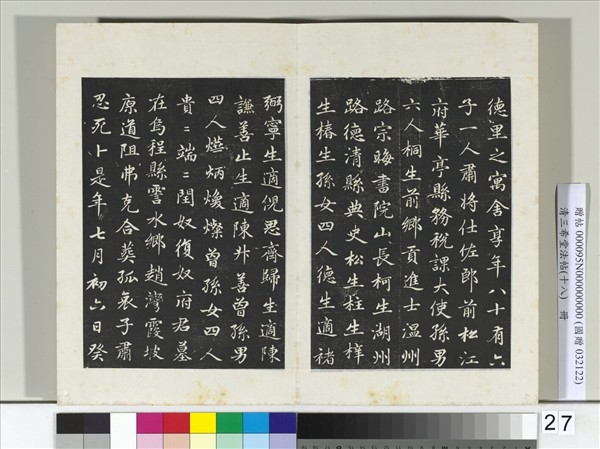 德里之寓舍享年八十有六
子一人肅將仕佐郎前松江
府華亭縣務稅課大使孫男
六人桐生前鄉貢進士溫州
路宗晦書院山長柯生湖州
路德清縣典史松生柱生梓
生椿生孫女四人德生適褚
弼寧生適倪思齊歸生適陳
謙善止生適陳升善曾孫男
四人燃炳煥燦曾孫女四人
貴〻端〻閏奴復奴府君墓
在烏程縣霅水鄉趙灣霞坡
原道阻弗克合葬孤哀子肅
忍死卜是年七月初六日癸
贈帖 000095N000000000 (國贈 032122)
清三希堂法帖(十八) 冊
27